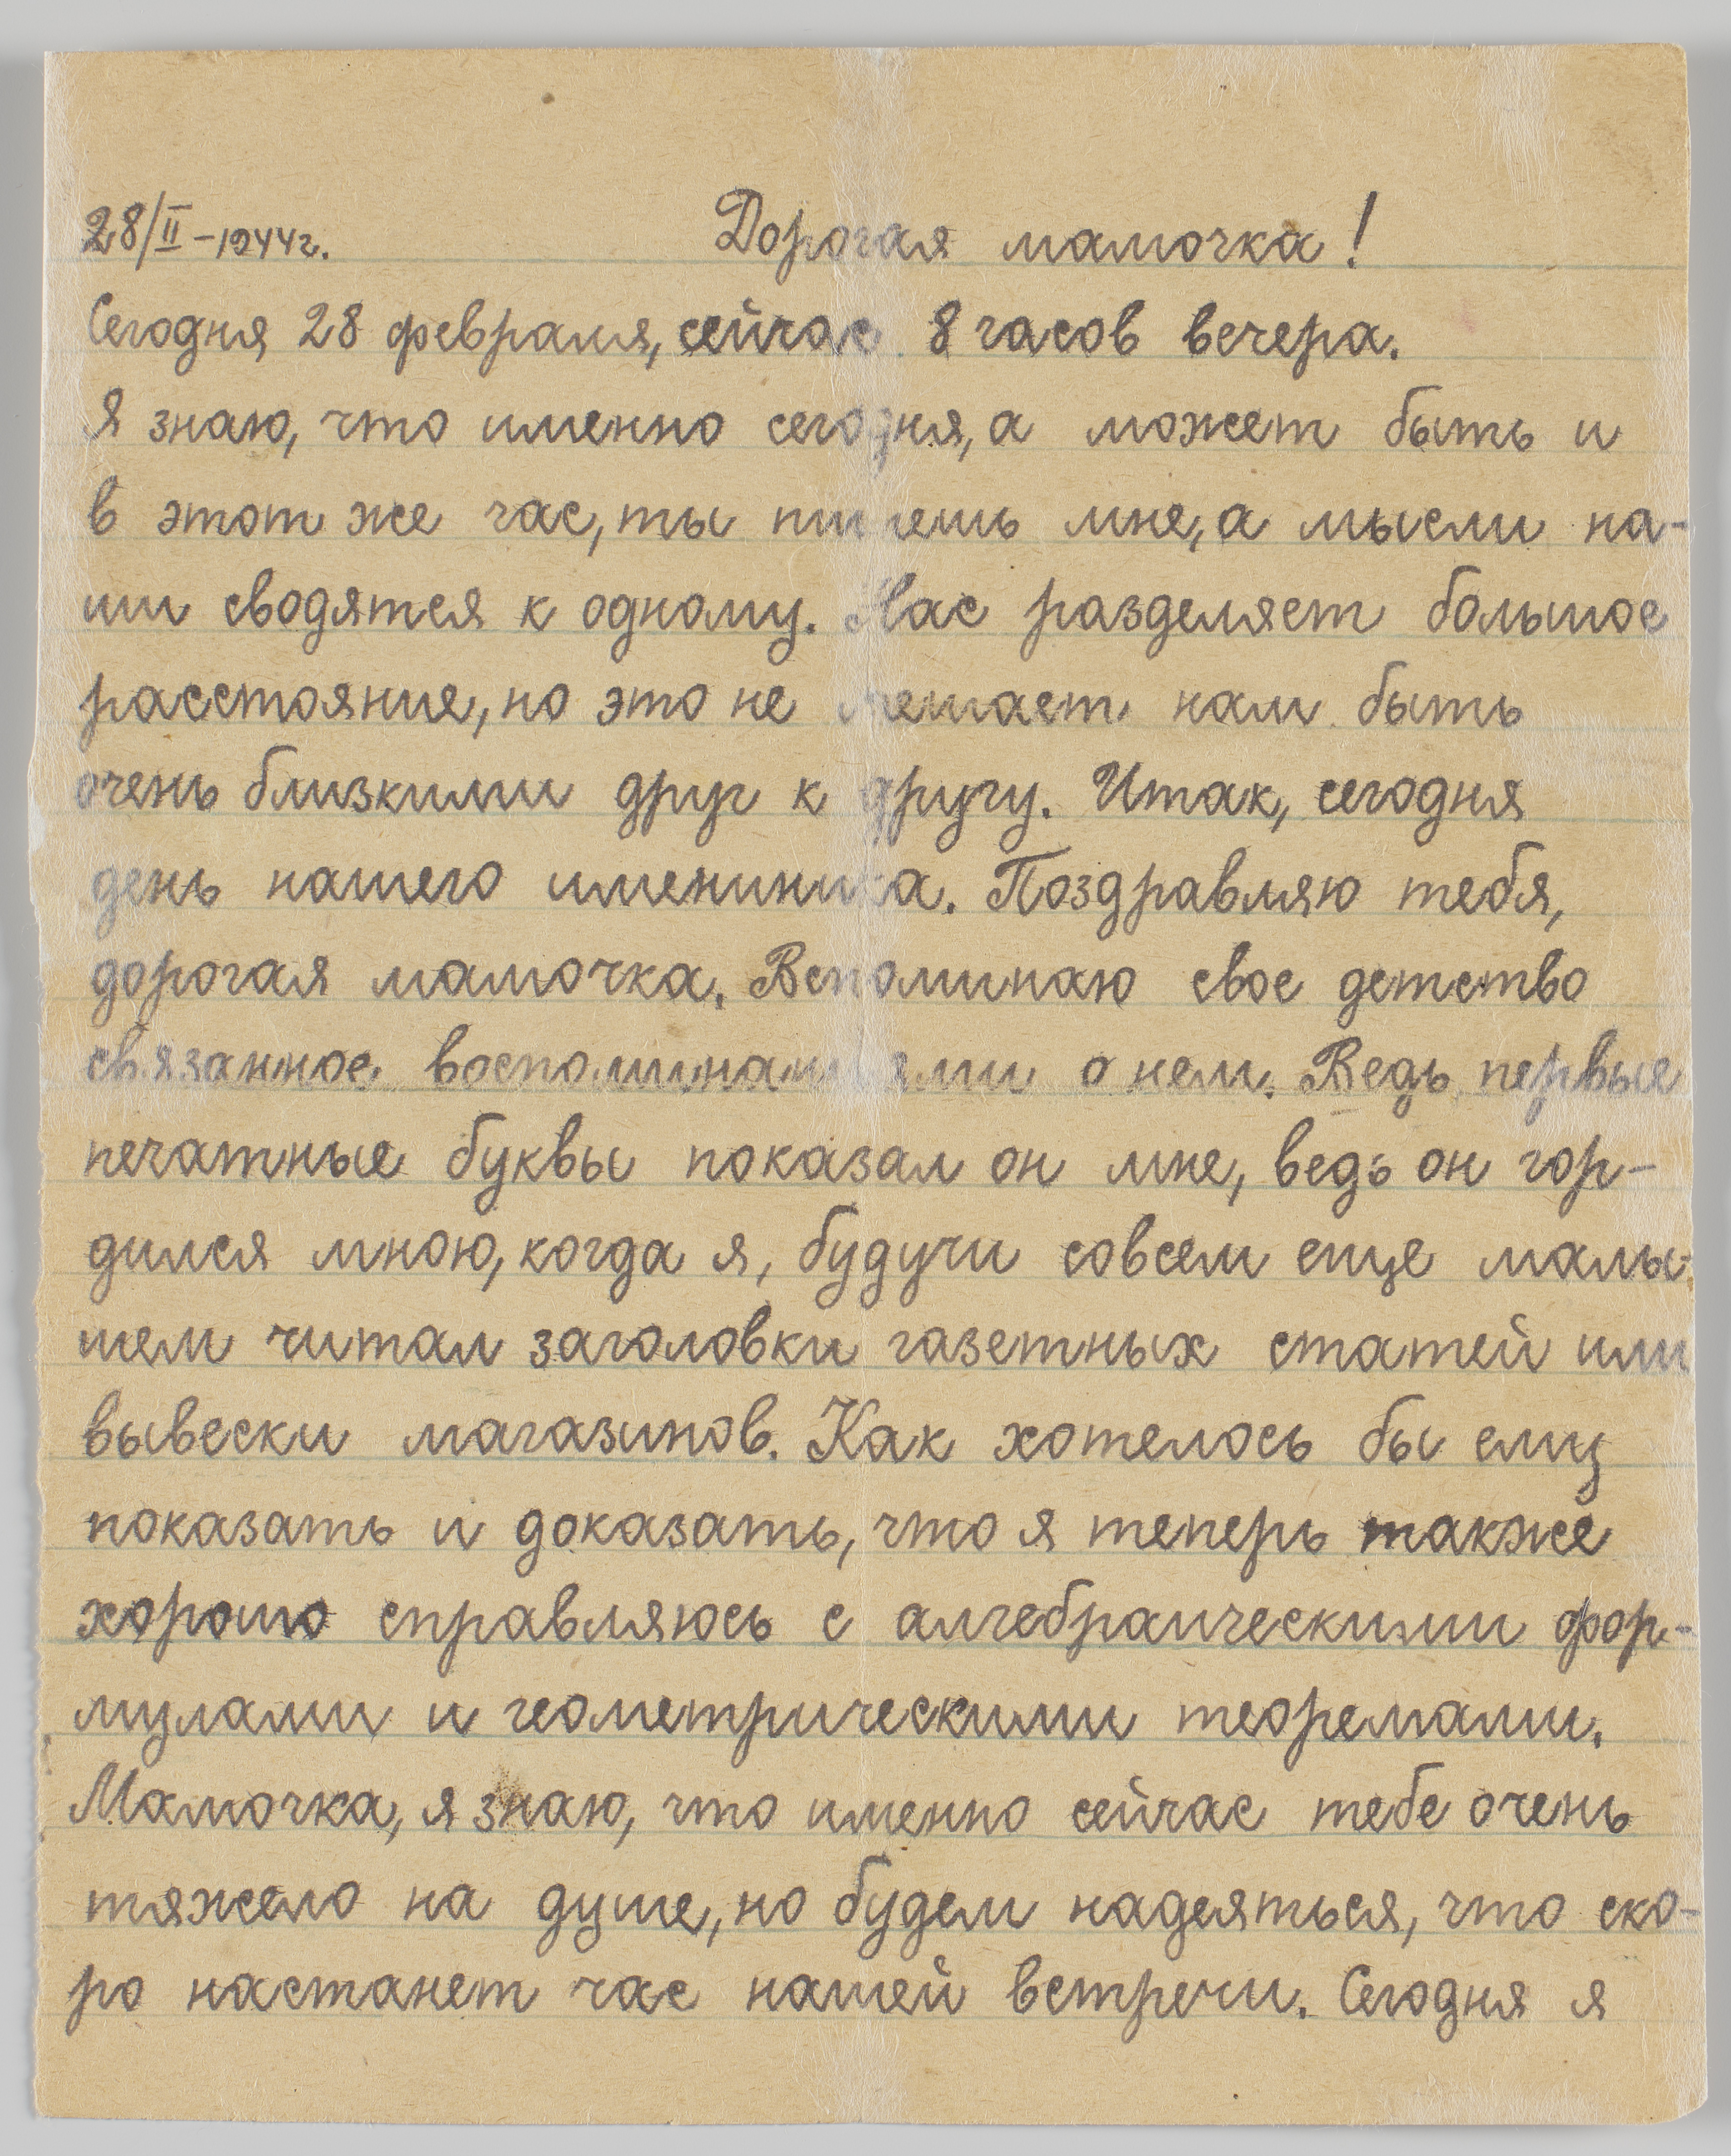 28/II-1944г. Дорогая мамочка!
Сегодня 28 февраля, сейчас 8 часов вечера.
Я знаю, что именно сегодня, а может быть и
в этот же час, ты пишешь мне, а мысли на-
ши сводятся к одному. Нас разделяет большое
расстояние, но это не мешает нам быть
очень близкими друг к другу. Итак, сегодня
день нашего имениника. Поздравляю тебя,
дорогая мамочка. Вспоминаю свое детство
связанное воспоминаниями о нем. Ведь первые
печатные буквы показал он мне, ведь он гор-
дился мною, когда я, будучи совсем еще малы-
шем читал заголовки газетных статей или
вывески магазинов. Как хотелось бы ему
показать и доказать, что я теперь также
хорошо справляюсь с алгебраическими фор-
мулами и геометрическими теоремами.
Мамочка, я знаю, что именно сейчас тебе очень
тяжело на душе, но будем надеяться, что ско-
ро настанет час нашей встречи. Сегодня я